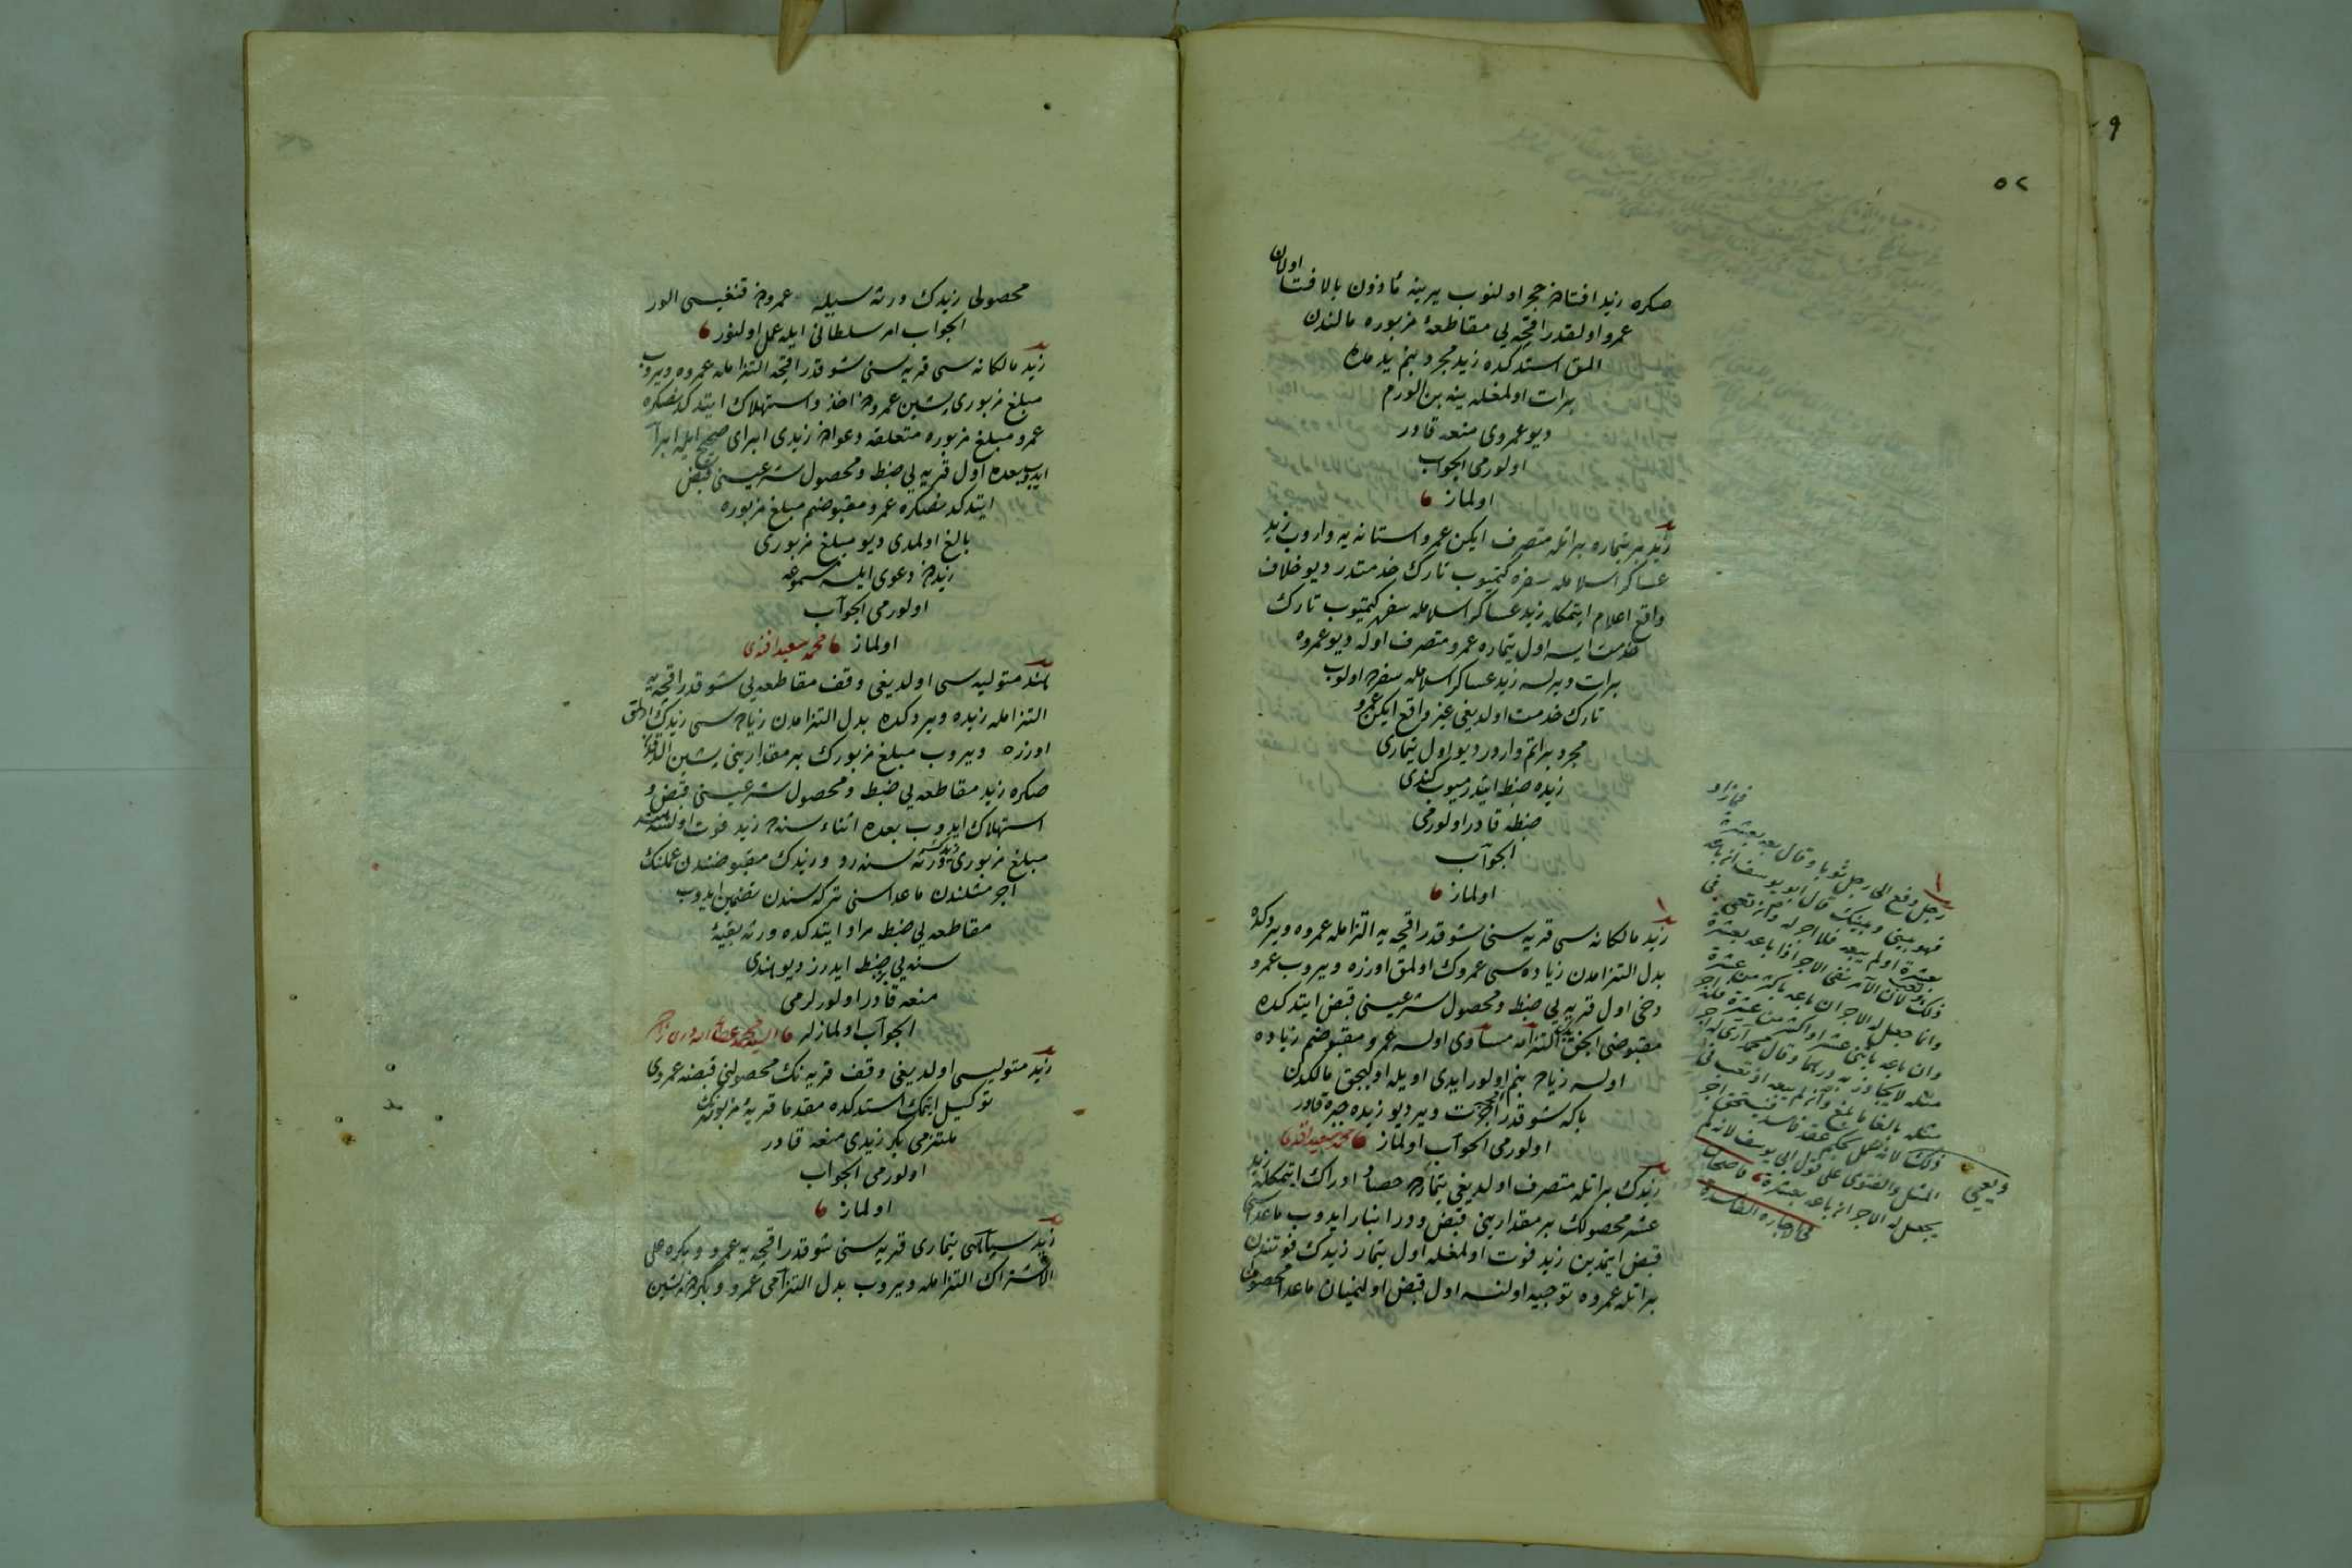 ٥٢
صكره زيد افتادن حجر اولنوب يرينه مأذون بالافتا اولان
عمرو اولقدر اقچه يى مقاطعهٔ مزبوره مالندن
المق استدكده زيد مجرد بنم يدمده
برات اولمغله ينه بن الورم
ديو عمروى منعه قادر
اولورمى الجواب
اولماز
زيد بر تيماره براتله متصرف ايكن عمرو استانه يه واروب زيد
عساكر اسلامله سفره كتميوب تارك خدمتدر ديو خلاف
واقع اعلام ايتمكله زيد عساكر اسلامله سفره كتميوب تارك
خدمت ايسه اول تيماره عمرو متصرف اوله ديو عمروه
برات ويرلسه زيد عساكر اسلامله سفرده اولوب
تارك خدمت اولديغى غير واقع ايكن عمرو
مجرد براتم واردر ديو اول تيمارى
زيده ضبط ايتدرميوب كندى
ضبطه قادر اولورمى
الجواب
اولماز
زيد مالكانه سى قريه سنى شو قدر اقچه يه التزامله عمروه ويردكده
بدل التزامدن زياده سى عمروك اولمق اوزره ويروب عمرو
دخى اول قريه يى ضبط ومحصول شرعيسنى قبض ايتدكده
مقبوضى انجق بدل التزامه مساوى اولسه عمرو مقبوضم زياده
اولسه زياده بنم اولور ايدى اويله اوليجق مالكدن
بكا شو قدر اجرت وير ديو زيده جبره قادر
اولورمى الجواب اولماز محمد سعيد افندى
زيدك براتله متصرف اولديغى تيمارده حصاد ادراك ايتمكله زيد
عشر محصولك بر مقدارينى قبض ودر انبار ايدوب ماعداسنى
قبض ايتمدين زيد فوت اولمغله اول تيمار زيدك فوتندن
براتله عمروه توجيه اولنسه اول قبض اولنميان ماعدا محصولى
رجل دفع الى رجل ثوبا وقال بعه بعشرة فما زاد
فهو بينى وبينك قال ابو يوسف ان باعه
بعشرة او لم يبعه فلا اجر له وان تعب فى
ذلك لان الآمر نفى الاجر اذا باعه بعشرة
وانما جعل له الاجر ان باعه باكثر من عشرة
وان باعه باثنى عشر او اكثر من عشرة فله اجر
مثله لا يجاوز به درهما وقال محمد ارى له اجر
مثله بالغا ما بلغ وان لم يبعه اذا تعب فى
ذلك لانه عمل بحكم عقد فاسد فيستحق اجر
المثل والفتوى على قول ابى يوسف لانه لم
يجعل له الاجر ان باعه بعشرة قاضيخان
فى الاجارة الفاسدة
محصولى زيدك ورثه سيله عمرودن قنغيسى الور
الجواب امر سلطانى ايله عمل اولنور
زيد مالكانه سى قريه سنى شو قدر اقچه التزامله عمروه ويروب
مبلغ مزبورى پشين عمرودن اخذ واستهلاك ايتدكدنصكره
عمرو مبلغ مزبوره متعلقه دعوادن زيدى ابراى صحيح ايله ابرا
ايدوب بعده اول قريه يى ضبط ومحصول شرعيسنى قبض
ايتدكدنصكره عمرو مقبوضم مبلغ مزبوره
بالغ اولمدى ديو مبلغ مزبورى
زيددن دعوى ايلسه مسموعه
اولورمى الجواب
اولماز محمد سعيد افندى
هند متوليه سى اولديغى وقف مقاطعه يى شو قدر اقچه يه
التزامله زيده ويردكده بدل التزامدن زياده سى زيدك اولمق
اوزره ويروب مبلغ مزبورك بر مقدارينى پشين الدقدن
صكره زيد مقاطعه يى ضبط ومحصول شرعيسنى قبض و
استهلاك ايدوب بعده اثناء سنه ده زيد فوت اولسه هند
مبلغ مزبورى زيدك ورثه سنه رد وزيدك مقبوضندن عملنك
اجر مثلندن ماعداسنى تركه سندن تضمين ايدوب
مقاطعه يى ضبط مراد ايتدكده ورثه بقيهٔ
سنه يى بز ضبط ايدرز ديو هندى
منعه قادر اولورلرمى
الجواب اولمازلر
زيد متوليسى اولديغى وقف قريه نك محصولنى قبضه عمروى
توكيل ايتمك استدكده مقدما قريهٔ مزبوره نك
ملتزمى بكر زيدى منعه قادر
اولورمى الجواب
اولماز
زيد سپاهى تيمارى قريه سنى شو قدر اقچه يه عمرو وبكره على
الاشتراك التزامله ويروب بدل التزامى عمرو وبكردن پشين